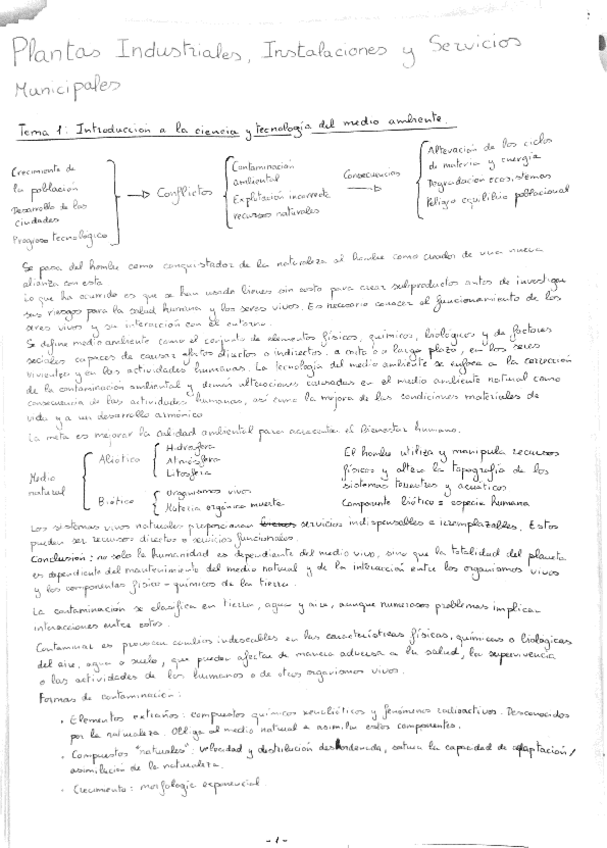 Plantas Industriales, Instalaciones y Servicios
Municipales
Tema 1: Introducción a la ciencia y tecnología del medio ambiente.
Crecimiento de
la población
Desarrollo de las
ciudades
Progreso tecnológico
→ Conflictos
Contaminación
ambiental
Explotación incorrecta
recursos naturales
Consecuencias
→
Alteración de los ciclos
de materia y energía
Degradación ecosistemas
Peligro equilibrio poblacional
Se pasa del hombre como conquistador de la naturaleza al hombre como creador de una nueva
alianza con esta
Lo que ha ocurrido es que se han usado bienes sin costo para crear subproductos antes de investigar
sus riesgos para la salud humana y los seres vivos. Es necesario conocer el funcionamiento de los
seres vivos y su interacción con el entorno.
Se define medio ambiente como el conjunto de elementos físicos, químicos, biológicos y de factores
sociales capaces de causar efectos directos o indirectos, a corto o largo plazo, en los seres
vivientes y en las actividades humanas. La tecnología del medio ambiente se enfoca a la corrección
de la contaminación ambiental y demás alteraciones causadas en el medio ambiente natural como
consecuencia de las actividades humanas, así como la mejora de las condiciones materiales de
vida y a un desarrollo armónico
La meta es mejorar la calidad ambiental para acrecentar el bienestar humano.
Medio
natural
Abiótico
Hidrosfera
Atmósfera
Litosfera
Biótico
Organismos vivos
Materia orgánica muerta
El hombre utiliza y manipula recursos
físicos y altera la topografía de los
sistemas terrestres y acuáticos
Componente biótico = especie humana
Los sistemas vivos naturales proporcionan servicios indispensables e irremplazables. Estos
pueden ser recursos directos o servicios funcionales.
Conclusión: no solo la humanidad es dependiente del medio vivo, sino que la totalidad del planeta
es dependiente del mantenimiento del medio natural y de la interacción entre los organismos vivos
y los componentes físico-químicos de la tierra.
La contaminación se clasifica en tierra, agua y aire, aunque numerosos problemas implican
interacciones entre estos.
Contaminar es provocar cambios indeseables en las características físicas, químicas o biológicas
del aire, agua o suelo, que puedan afectar de manera adversa a la salud, la supervivencia
o las actividades de los humanos o de otros organismos vivos.
Formas de contaminación:
· Elementos extraños: compuestos químicos xenobióticos y fenómenos radioactivos. Desconocidos
por la naturaleza. Obliga al medio natural a asimilar estos componentes.
· Compuestos "naturales": velocidad y distribución desordenada, satura la capacidad de adaptación/
asimilación de la naturaleza.
· Crecimiento: morfología exponencial.
-1-